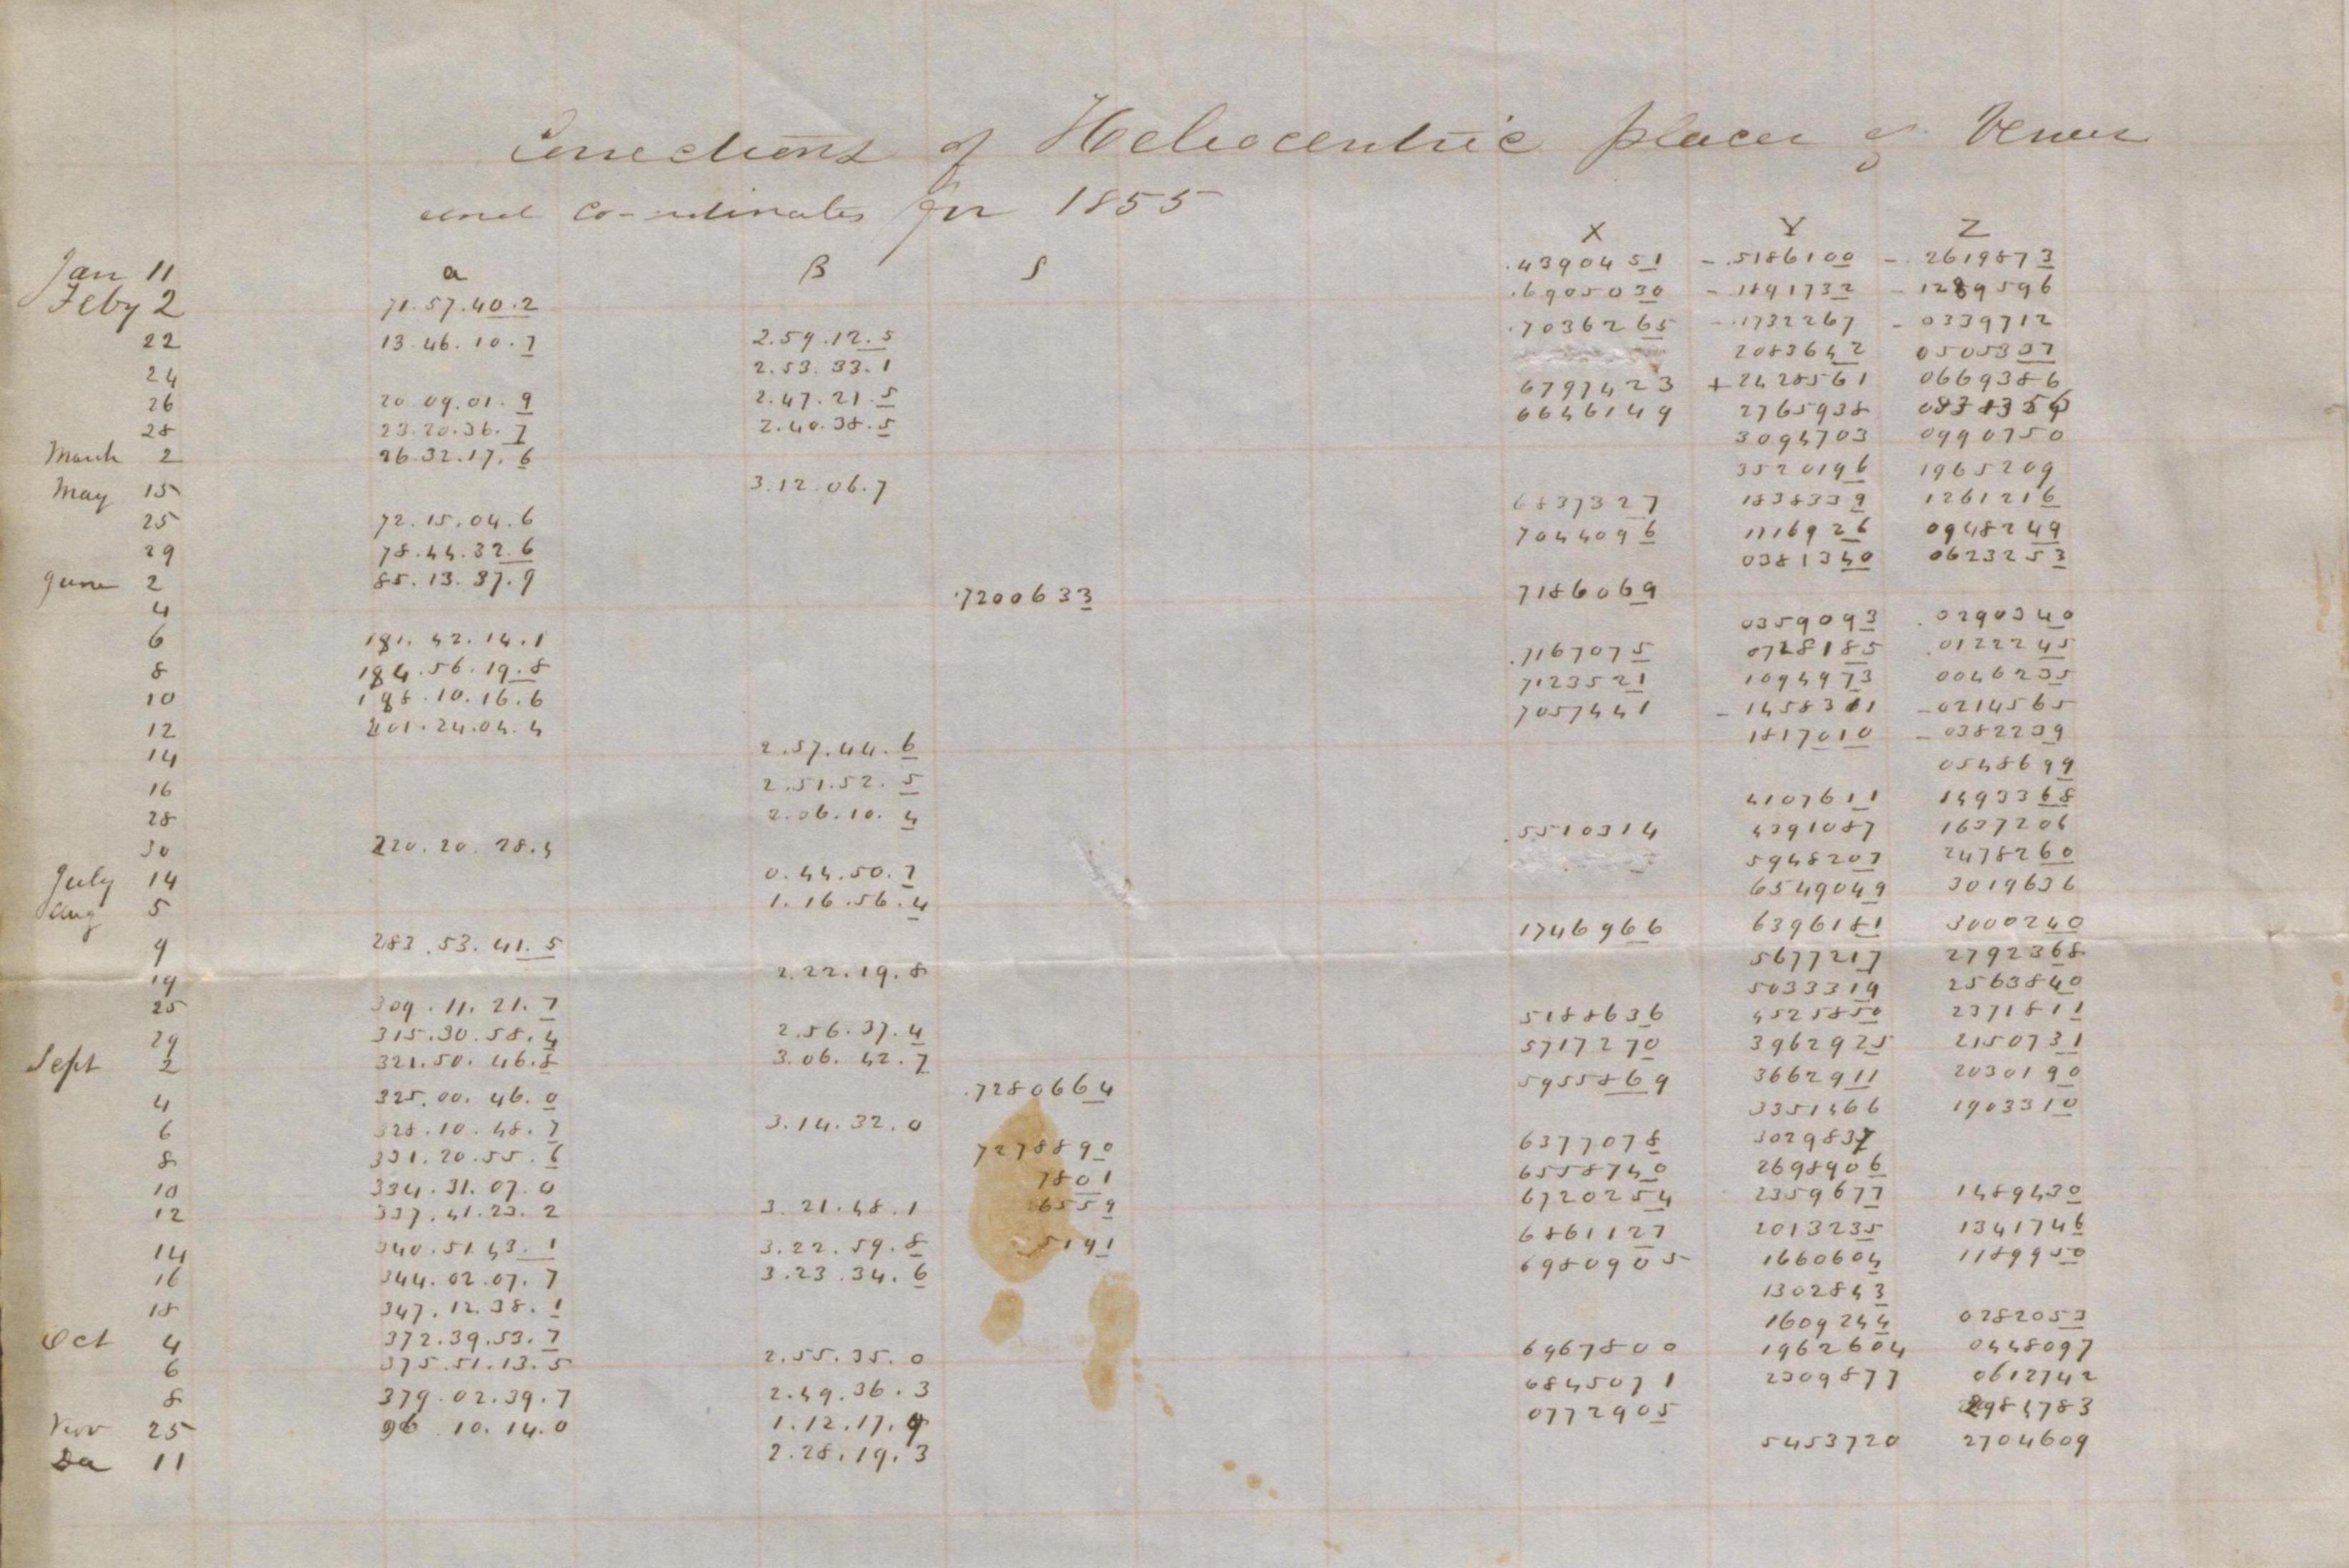 Corrections of Heliocentric places of Venus
and co-ordinates for 1855
X Y Z
Jan 11 a β S .4390451 - .5186100 - .2619873
Feby 2 71.57.40.2 .6905030 - .1891732 - 1289596
22 13.46.10.7 2.59.12.5 .7036265 - .1732267 - 0339712
24 2.53.33.1 2083642 0505337
26 20 09.01.9 2.47.21.5 6797423 + 2428561 0669386
28 23.20.36.7 2.40.38.5 6646149 2765938
March 2 26.32.17.6 3094703 0990750
May 15 3.12.06.7 3520196 1965209
25 72.15.04.6 6837327 1838339 1261216
29 78.44.32.6 7044096 1116926 0948249
June 2 85.13.37.9 0381340 0623253
4 .7200633 7186069
6 191.42.14.1 0359093 .0290340
8 194.56.19.8 .7167075 0728185 .0122245
10 198.10.16.6 7123521 1094973 0046235
12 201.24.04.4 7057441 - 1458311 - 0214565
14 2.57.44.6 1817010 - 0382239
16 2.51.52.5 0548699
28 2.06.10.4 4107611 1493368
30 220.20.28.4 .5510314 4391087 1637206
July 14 0.44.50.7 5948207 2478260
Aug 5 1.16.56.4 6549049 3019636
9 283.53.41.5 1746966 6396181 3000240
19 2.22.19.8 5677217 2792368
25 309.11.21.7 5033319 2563840
29 315.30.58.4 2.56.37.4 5188636 4525850 2371811
Sept 2 321.50.46.8 3.06.42.7 5717270 3962925 2150731
4 325.00.46.0 .7280664 5955869 3662911 2030190
6 328.10.48.7 3.14.32.0 3351466 1903310
8 331.20.55.6 7278890 6377078 3029837
10 334.31.07.0 7801 6558740 2698906
12 337.41.23.2 3.21.48.1 6559 6720254 2359677 1489430
14 340.51.43.1 3.22.59.8 5191 6861127 2013235 1341746
16 344.02.07.7 3.23.34.6 6980905 1660604 1189950
18 347.12.38.1 1302843
Oct 4 372.39.53.7 1609244 0282053
6 375.51.13.5 2.55.35.0 6967800 1962604 0448097
8 379.02.39.7 2.49.36.3 6845071 2309877 0612742
Nov 25 96.10.14.0 1.12.17.9 0772905 2984783
11 2.28.19.3 5453720 2704609